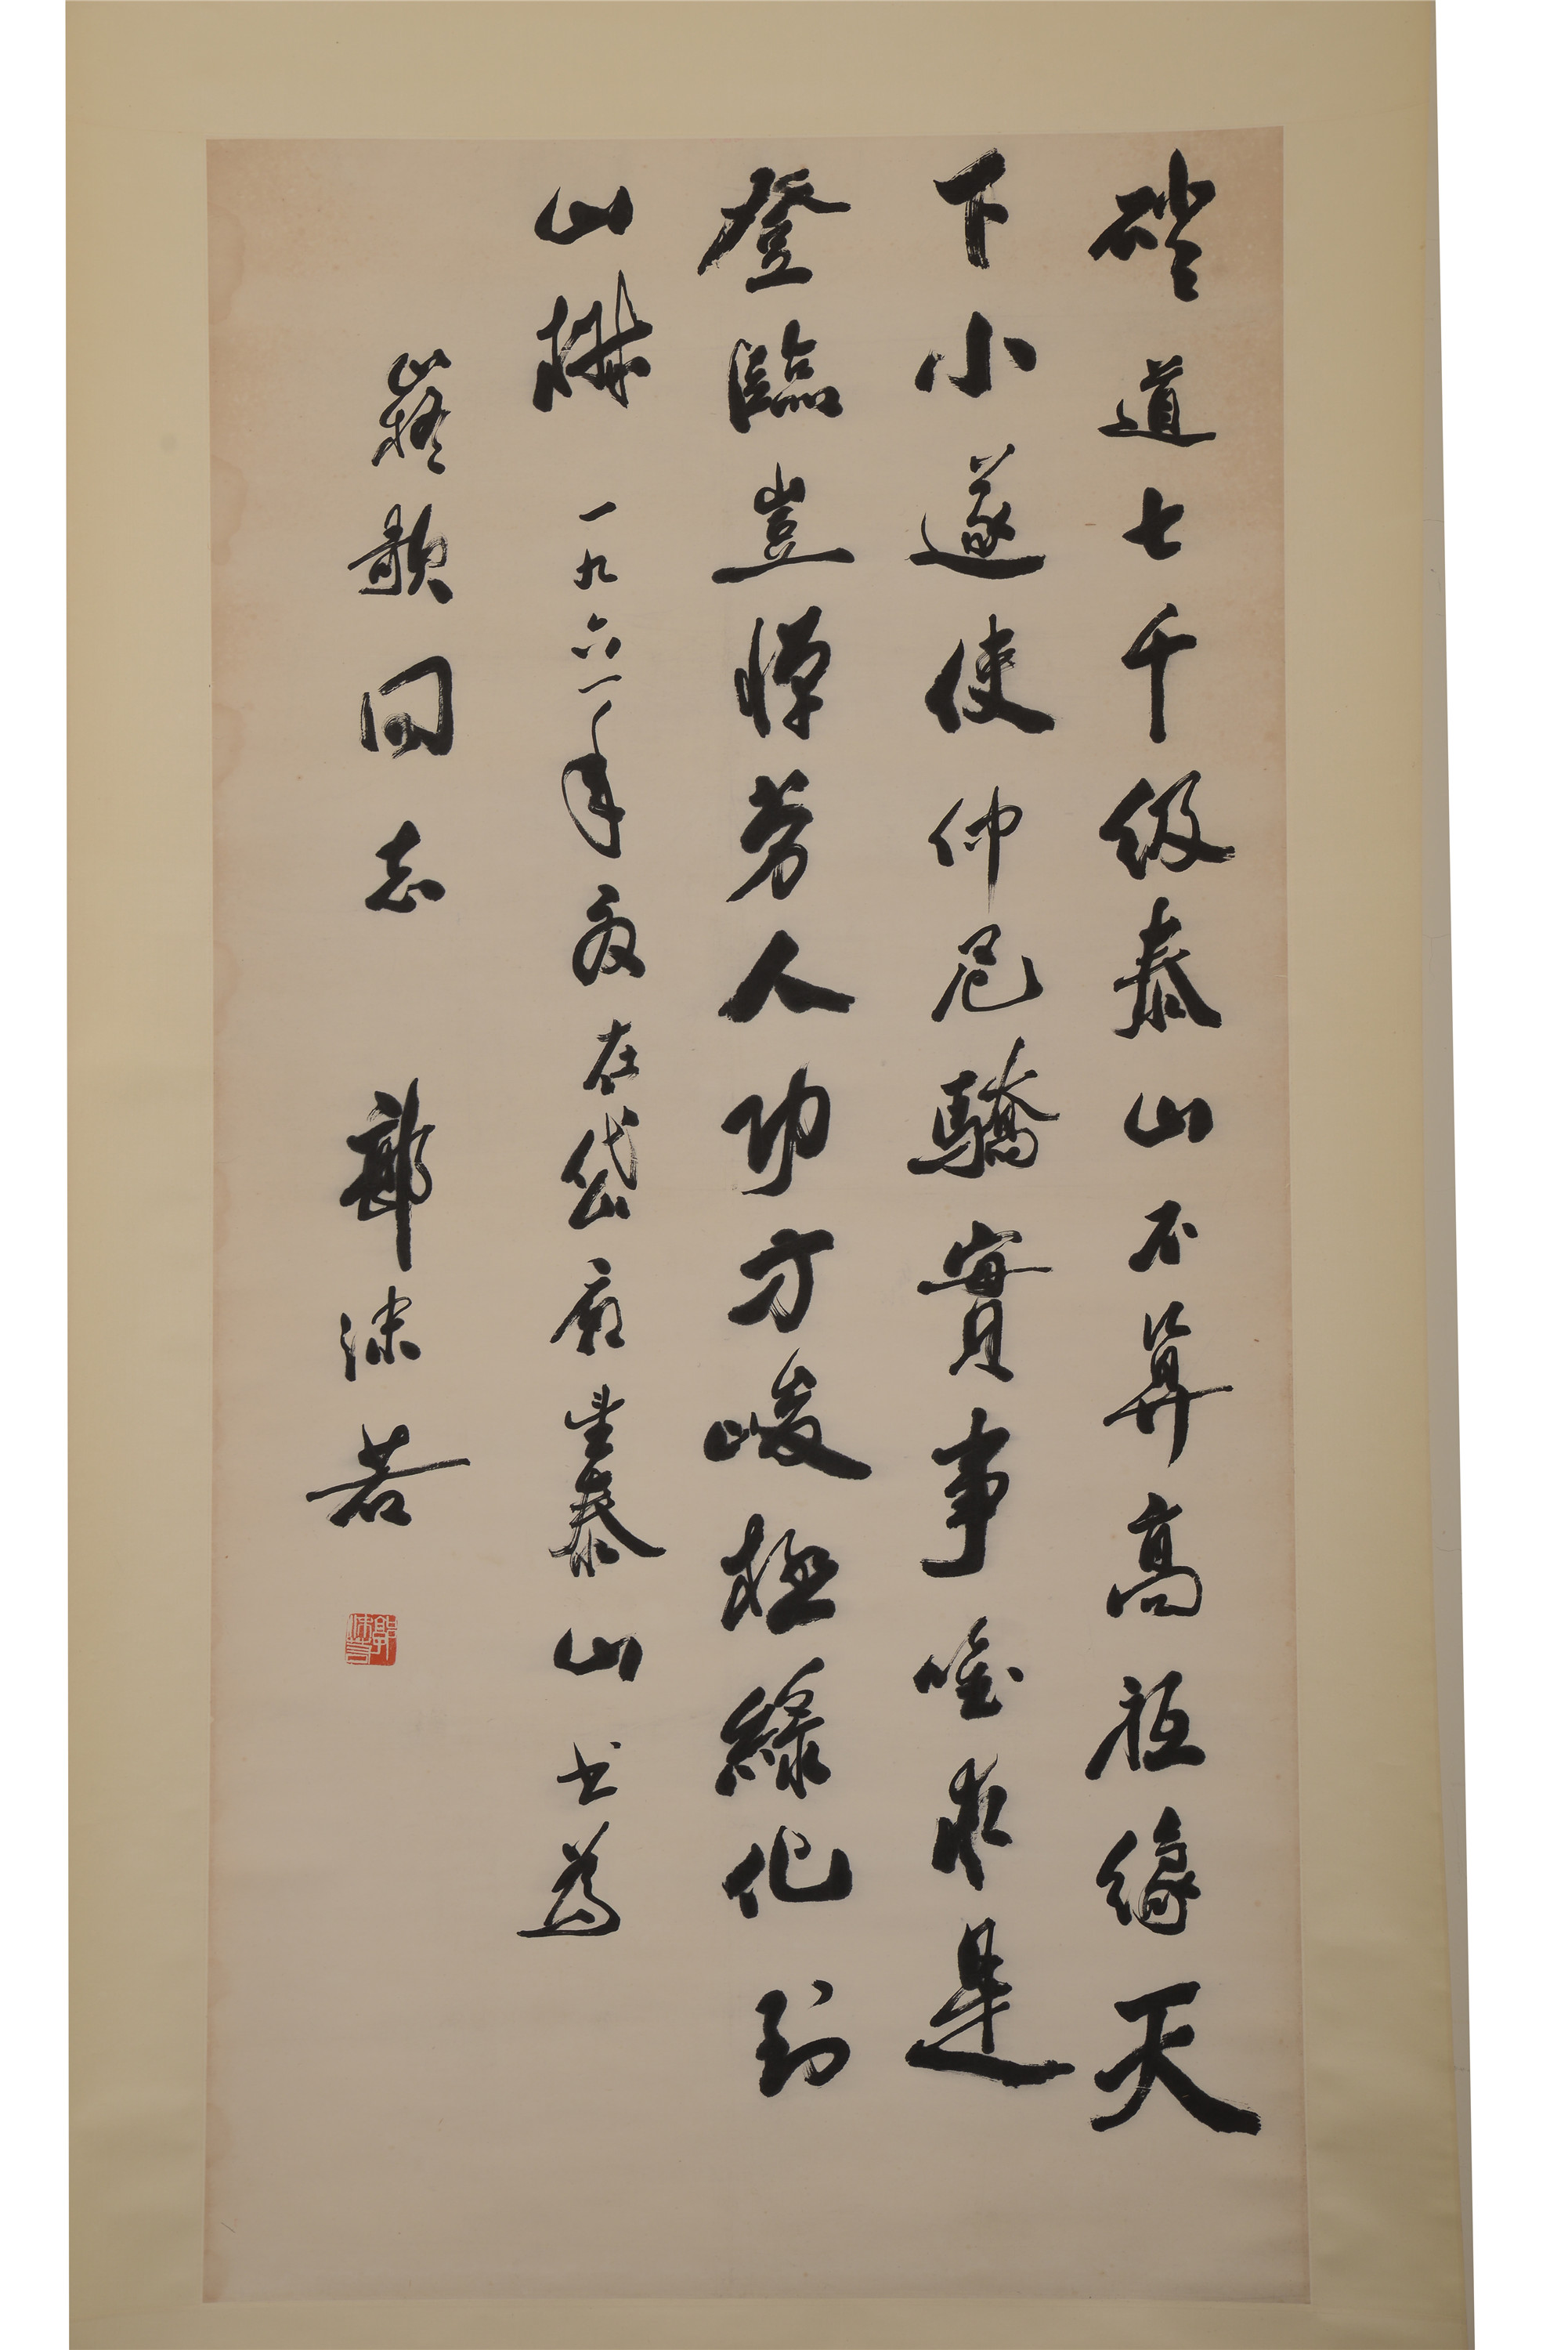 磴道七千級泰山不算高祗緣天
下小遂使仲尼驕實事唯求是
登臨豈憚勞人功方峻極綠化到
山椒 一九六一年夏在岱廟望泰山书為
歌同志 郭沫若
郭沫若